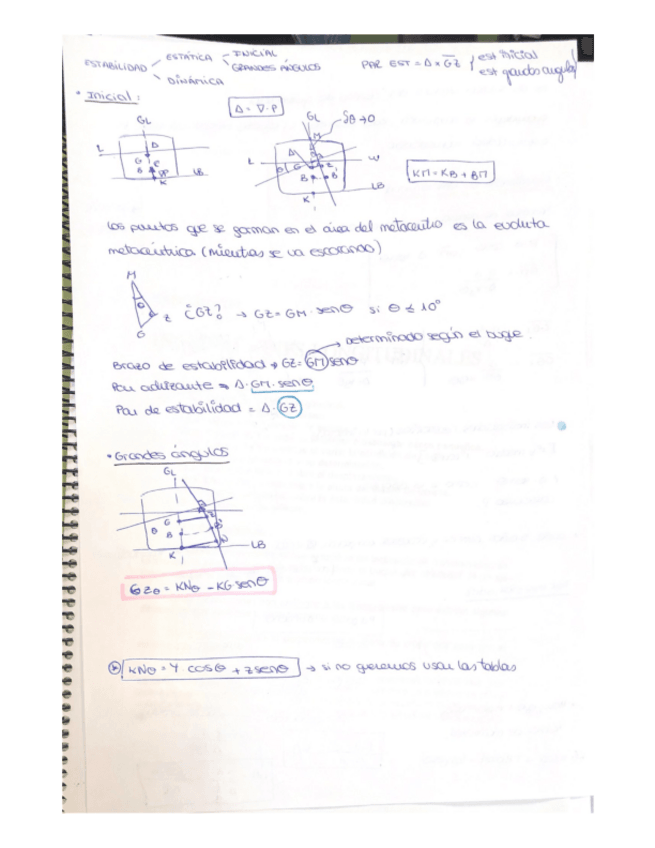 ESTABILIDAD ESTÁTICA INICIAL
GRANDES ÁNGULOS
DINÁMICA
PAR EST = Δ × GZ est inicial
est grandes angulos
• Inicial:
Δ = ∇·ρ
GL
L
Δ
G
C
B
K
LB
GL
M
δθ→0
L
Δ
θ
G
Z
B
B'
K
W
LB
KM = KB + BM
Los puntos que se forman en el área del metacentro es la evoluta
metacéntrica (mientras se va escorando)
M
θ
G
Z
¿GZ? → GZ = GM · senθ si θ ≤ 10°
Determinado según el buque.
Brazo de estabilidad → GZ = GM senθ
Par adrizante → Δ · GM · senθ
Par de estabilidad = Δ · GZ
• Grandes ángulos
GL
θ
G
Z
B
B'
K
LB
GZθ = KNθ - KG senθ
KNθ = Y · cosθ + z senθ → si no queremos usar las tablas